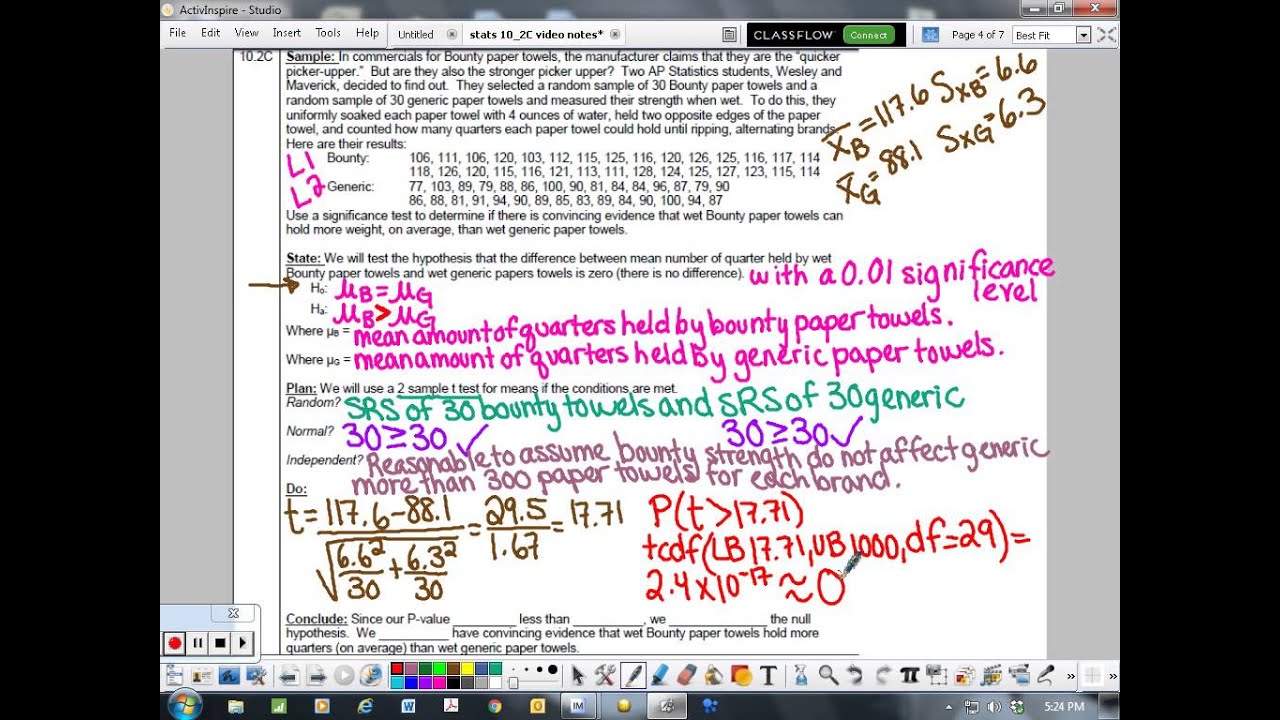 ActivInspire - Studio
File Edit View Insert Format Tools Help Untitled stats 10_2C video notes* CLASSFLOW Connect Page 4 of 7 Best Fit
10.2C Sample: In commercials for Bounty paper towels, the manufacturer claims that they are the "quicker
picker-upper." But are they also the stronger picker upper? Two AP Statistics students, Wesley and
Maverick, decided to find out. They selected a random sample of 30 Bounty paper towels and a
random sample of 30 generic paper towels and measured their strength when wet. To do this, they
uniformly soaked each paper towel with 4 ounces of water, held two opposite edges of the paper
towel, and counted how many quarters each paper towel could hold until ripping, alternating brands.
Here are their results:
L1 Bounty: 106, 111, 106, 120, 103, 112, 115, 125, 116, 120, 126, 125, 116, 117, 114
118, 126, 120, 115, 116, 121, 113, 111, 128, 124, 125, 127, 123, 115, 114
L2 Generic: 77, 103, 89, 79, 88, 86, 100, 90, 81, 84, 84, 96, 87, 79, 90
86, 88, 81, 91, 94, 90, 89, 85, 83, 89, 84, 90, 100, 94, 87
x̄B = 117.6 SxB = 6.6
x̄G = 88.1 SxG = 6.3
Use a significance test to determine if there is convincing evidence that wet Bounty paper towels can
hold more weight, on average, than wet generic paper towels.
State: We will test the hypothesis that the difference between mean number of quarter held by wet
Bounty paper towels and wet generic papers towels is zero (there is no difference). with a 0.01 significance
level
H₀: μB = μG
Hₐ: μB > μG
Where μB = mean amount of quarters held by bounty paper towels.
Where μG = mean amount of quarters held by generic paper towels.
Plan: We will use a 2 sample t test for means if the conditions are met.
Random? SRS of 30 bounty towels and SRS of 30 generic
Normal? 30 ≥ 30 ✓ 30 ≥ 30 ✓
Independent? Reasonable to assume bounty strength do not affect generic
more than 300 paper towels for each brand.
Do:
t = 117.6 - 88.1 / √(6.6²/30 + 6.3²/30) = 29.5/1.67 = 17.71
P(t > 17.71)
tcdf(LB 17.71, UB 1000, df = 29) =
2.4 x 10⁻¹⁷ ≈ 0
Conclude: Since our P-value ________ less than __________, we ______________ the null
hypothesis. We __________ have convincing evidence that wet Bounty paper towels hold more
quarters (on average) than wet generic paper towels.
5:24 PM